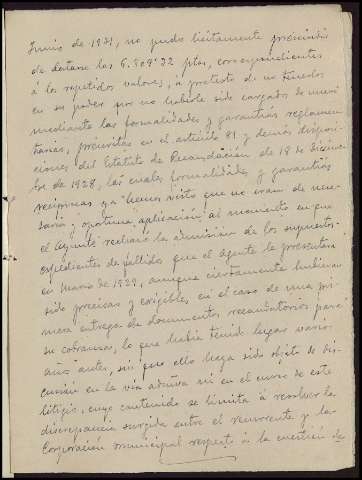 Junio de 1931, no pudo lícitamente prescindir
de datarse las 6.509'32 ptas, correspondientes
á los repetidos valores, á pretexto de no tenerlos
en su poder por no haberle sido cargados de nuevo
mediante las formalidades y garantías reglamen-
tarias, prescritas en el artículo 81 y demás disposi-
ciones del Estatuto de Recaudación de 18 de Diciem-
bre de 1928, las cuales formalidades y garantías
recíprocas ya hemos visto que no eran de nece-
saria y oportuna aplicación al momento en que
el Ayuntº rechazó la admisión de los supuestos
expedientes de fallidos que el Agente le presentara
en Marzo de 1929, aunque ciertamente hubieran
sido precisas y exigibles en el caso de una pri-
mera entrega de documentos recaudatorios para
su cobranza, lo que había tenido lugar varios
años antes, sin que ello haya sido objeto de dis-
cusión en la vía adtiva ni en el curso de este
litigio, cuyo contenido se limita á resolver la
discrepancia surgida entre el recurrente y la
Corporación municipal respecto á la cuestión de